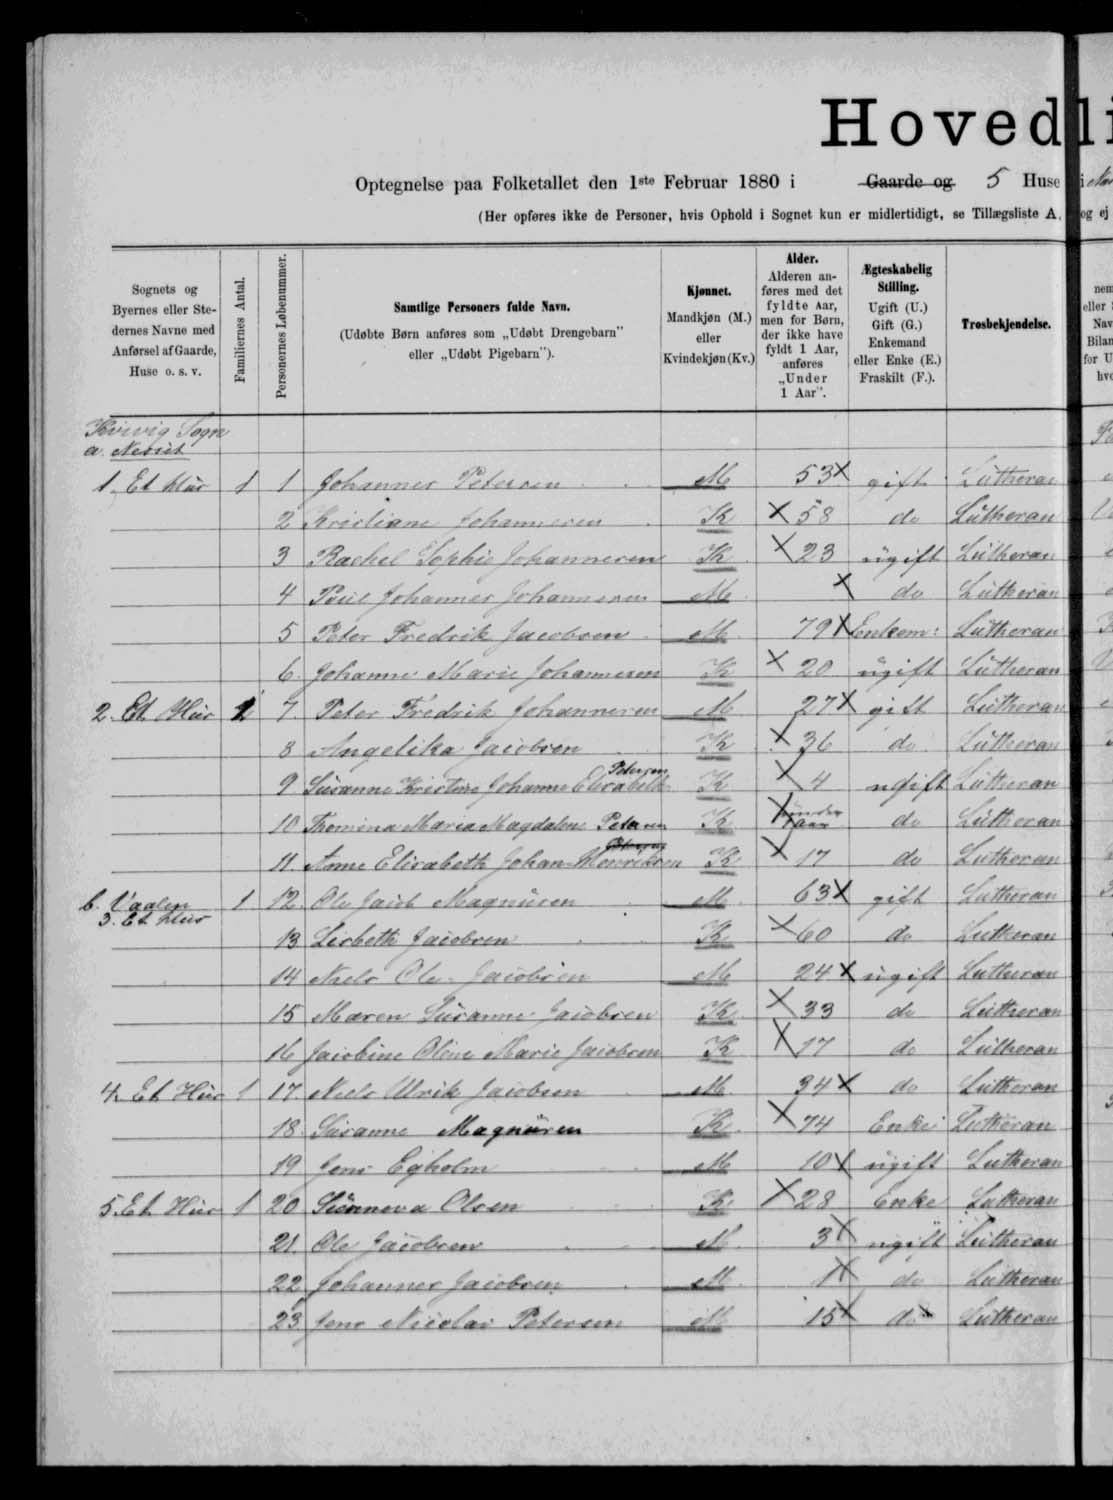 Hovedli
Optegnelse paa Folketallet den 1ste Februar 1880 i Gaarde og 5 Huse i
(Her opføres ikke de Personer, hvis Ophold i Sognet kun er midlertidigt, se Tillægsliste A, og ej
Sognets og Byernes eller Stedernes Navne med Anførsel af Gaarde, Huse o. s. v.
Familiernes Antal.
Personernes Løbenummer.
Samtlige Personers fulde Navn.
(Udøbte Børn anføres som „Udøbt Drengebarn" eller „Udøbt Pigebarn").
Kjønnet.
Mandkjøn (M.) eller Kvindekjøn (Kv.)
Alder.
Alderen anføres med det fyldte Aar, men for Børn, der ikke have fyldt 1 Aar, anføres „Under 1 Aar".
Ægteskabelig Stilling.
Ugift (U.) Gift (G.) Enkemand eller Enke (E.) Fraskilt (F.).
Trosbekjendelse.
Kvivig Sogn
a. Nesset
1. Et Hus 1 1 Johannes Petersen M 53 gift Lutheran
2 Kristiane Johannesen K 58 do Lutheran
3 Rachel Sophie Johannesen K 23 ugift Lutheran
4 Poul Johannes Johannesen M do Lutheran
5 Peter Fredrik Jacobsen M 79 Enkem: Lutheran
6. Johanne Marie Johannesen K 20 ugift Lutheran
2. Et Hus 7. Peter Fredrik Johannesen M 27 gift Lutheran
8 Angelika Jacobsen K 36 do Lutheran
9 Susanne Kristine Johanne Elisabeth Petersen K 4 ugift Lutheran
10 Thomina Maria Magdalene Petersen K under 1 aar do Lutheran
11. Anne Elisabeth Johan-Henriksen K 17 do Lutheran
b. Vaalen
3. Et Hus 1 12. Ole Jacob Magnusen M 63 gift Lutheran
13 Lisbeth Jacobsen K 60 do Lutheran
14 Niels Ole Jacobsen M 24 ugift Lutheran
15 Maren Susanne Jacobsen K 33 do Lutheran
16 Jacobine Oline Marie Jacobsen K 17 do Lutheran
4. Et Hus 1 17. Niels Ulrik Jacobsen M 34 do Lutheran
18. Susanne Magnusen K 74 Enke Lutheran
19 Jens Egholm M 10 ugift Lutheran
5. Et Hus 1 20 Sunneva Olsen K 28 Enke Lutheran
21. Ole Jacobsen M 3 ugift Lutheran
22 Johannes Jacobsen M 1 do Lutheran
23. Jens Nicolai Petersen M 15 do Lutheran